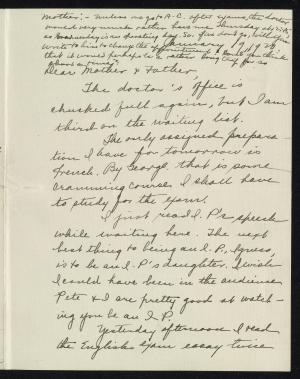 Mother: - Unless we go to A.C. after exams, the doctor
would very much rather have me Thursday
as Wednesday is an operating day. So. if we don't go, will you
write to him to change the appointment? I should think
January
that it would perhaps be a rather long trip for so
short a time?
Dear Mother & Father,
The doctor's office is
chucked full again, but I am
third on the waiting list.
The only assigned prepara-
tion I have for tomorrow is
French. By George, that is some
cramming course I shall have
to study for the exam.
I just read I. P.'s speech
while waiting here. The next
best thing to being an I.P., I guess,
is to be an I. P's daughter. I wish
I could have been in the audience.
Pete & I are pretty good at watch-
ing you be an I.P.
Yesterday afternoon I read
the English exam essay twice